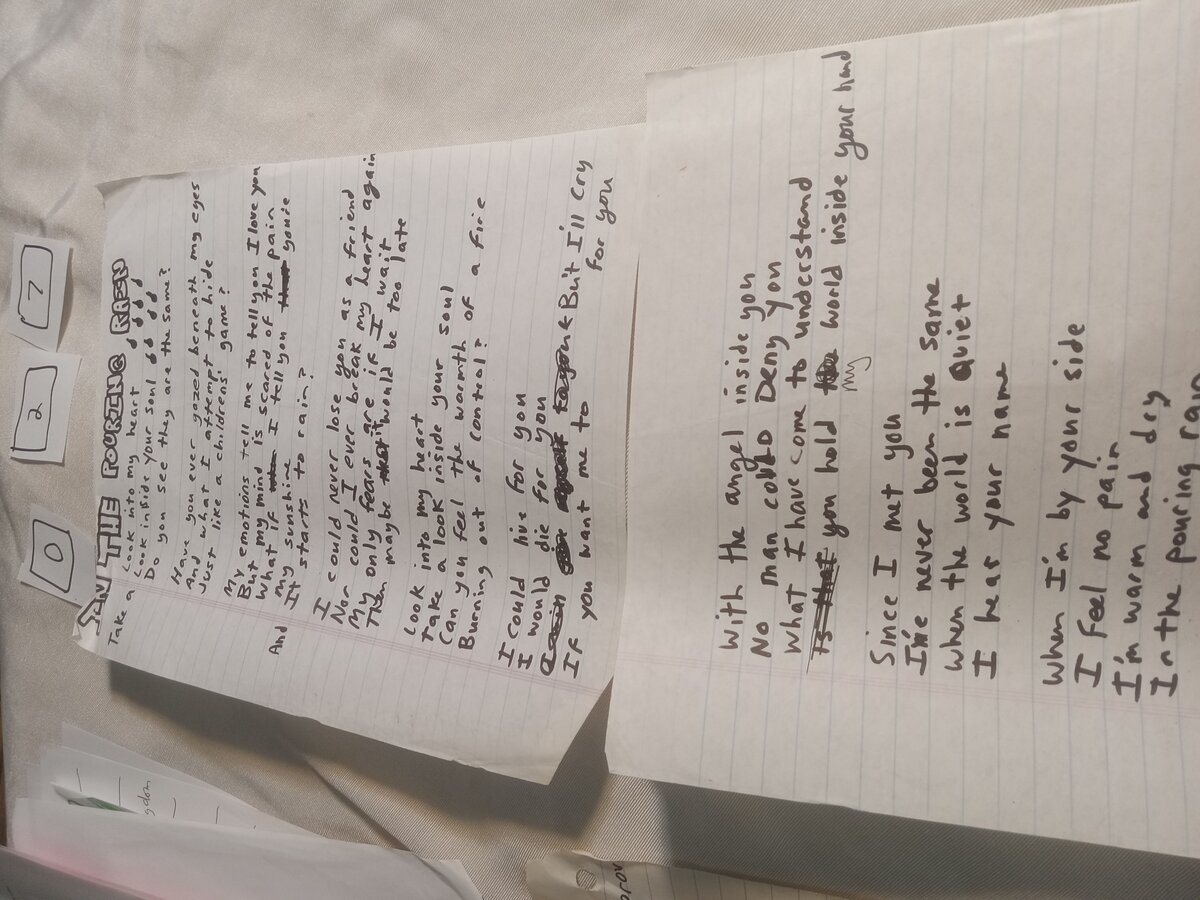 0
2
7
IN THE POURING RAIN
Take a Look into my heart
Look inside your soul
Do you see they are the same?
Have you ever gazed beneath my eyes
And what I attempt to hide
Just like a childrens' game?
My emotions tell me to tell you I love you
But my mind is scared of the pain
What if I tell you you're
my sunshine
And It starts to rain?
I could never lose you as a friend
Nor could I ever break my heart again
My only fears are if I wait
Then maybe it would be too late
Look into my heart
Take a look inside your soul
Can you feel the warmth of a fire
Burning out of control?
I could live for you
I would die for you
If you want me to & But I'll cry
for you
With the angel inside you
No man could Deny you
What I have come to understand
Is you hold my world inside your hand
Since I met you
I've never been the same
When the world is Quiet
I hear your name
When I'm by your side
I feel no pain
I'm warm and dry
In the pouring rain
gdom
prov